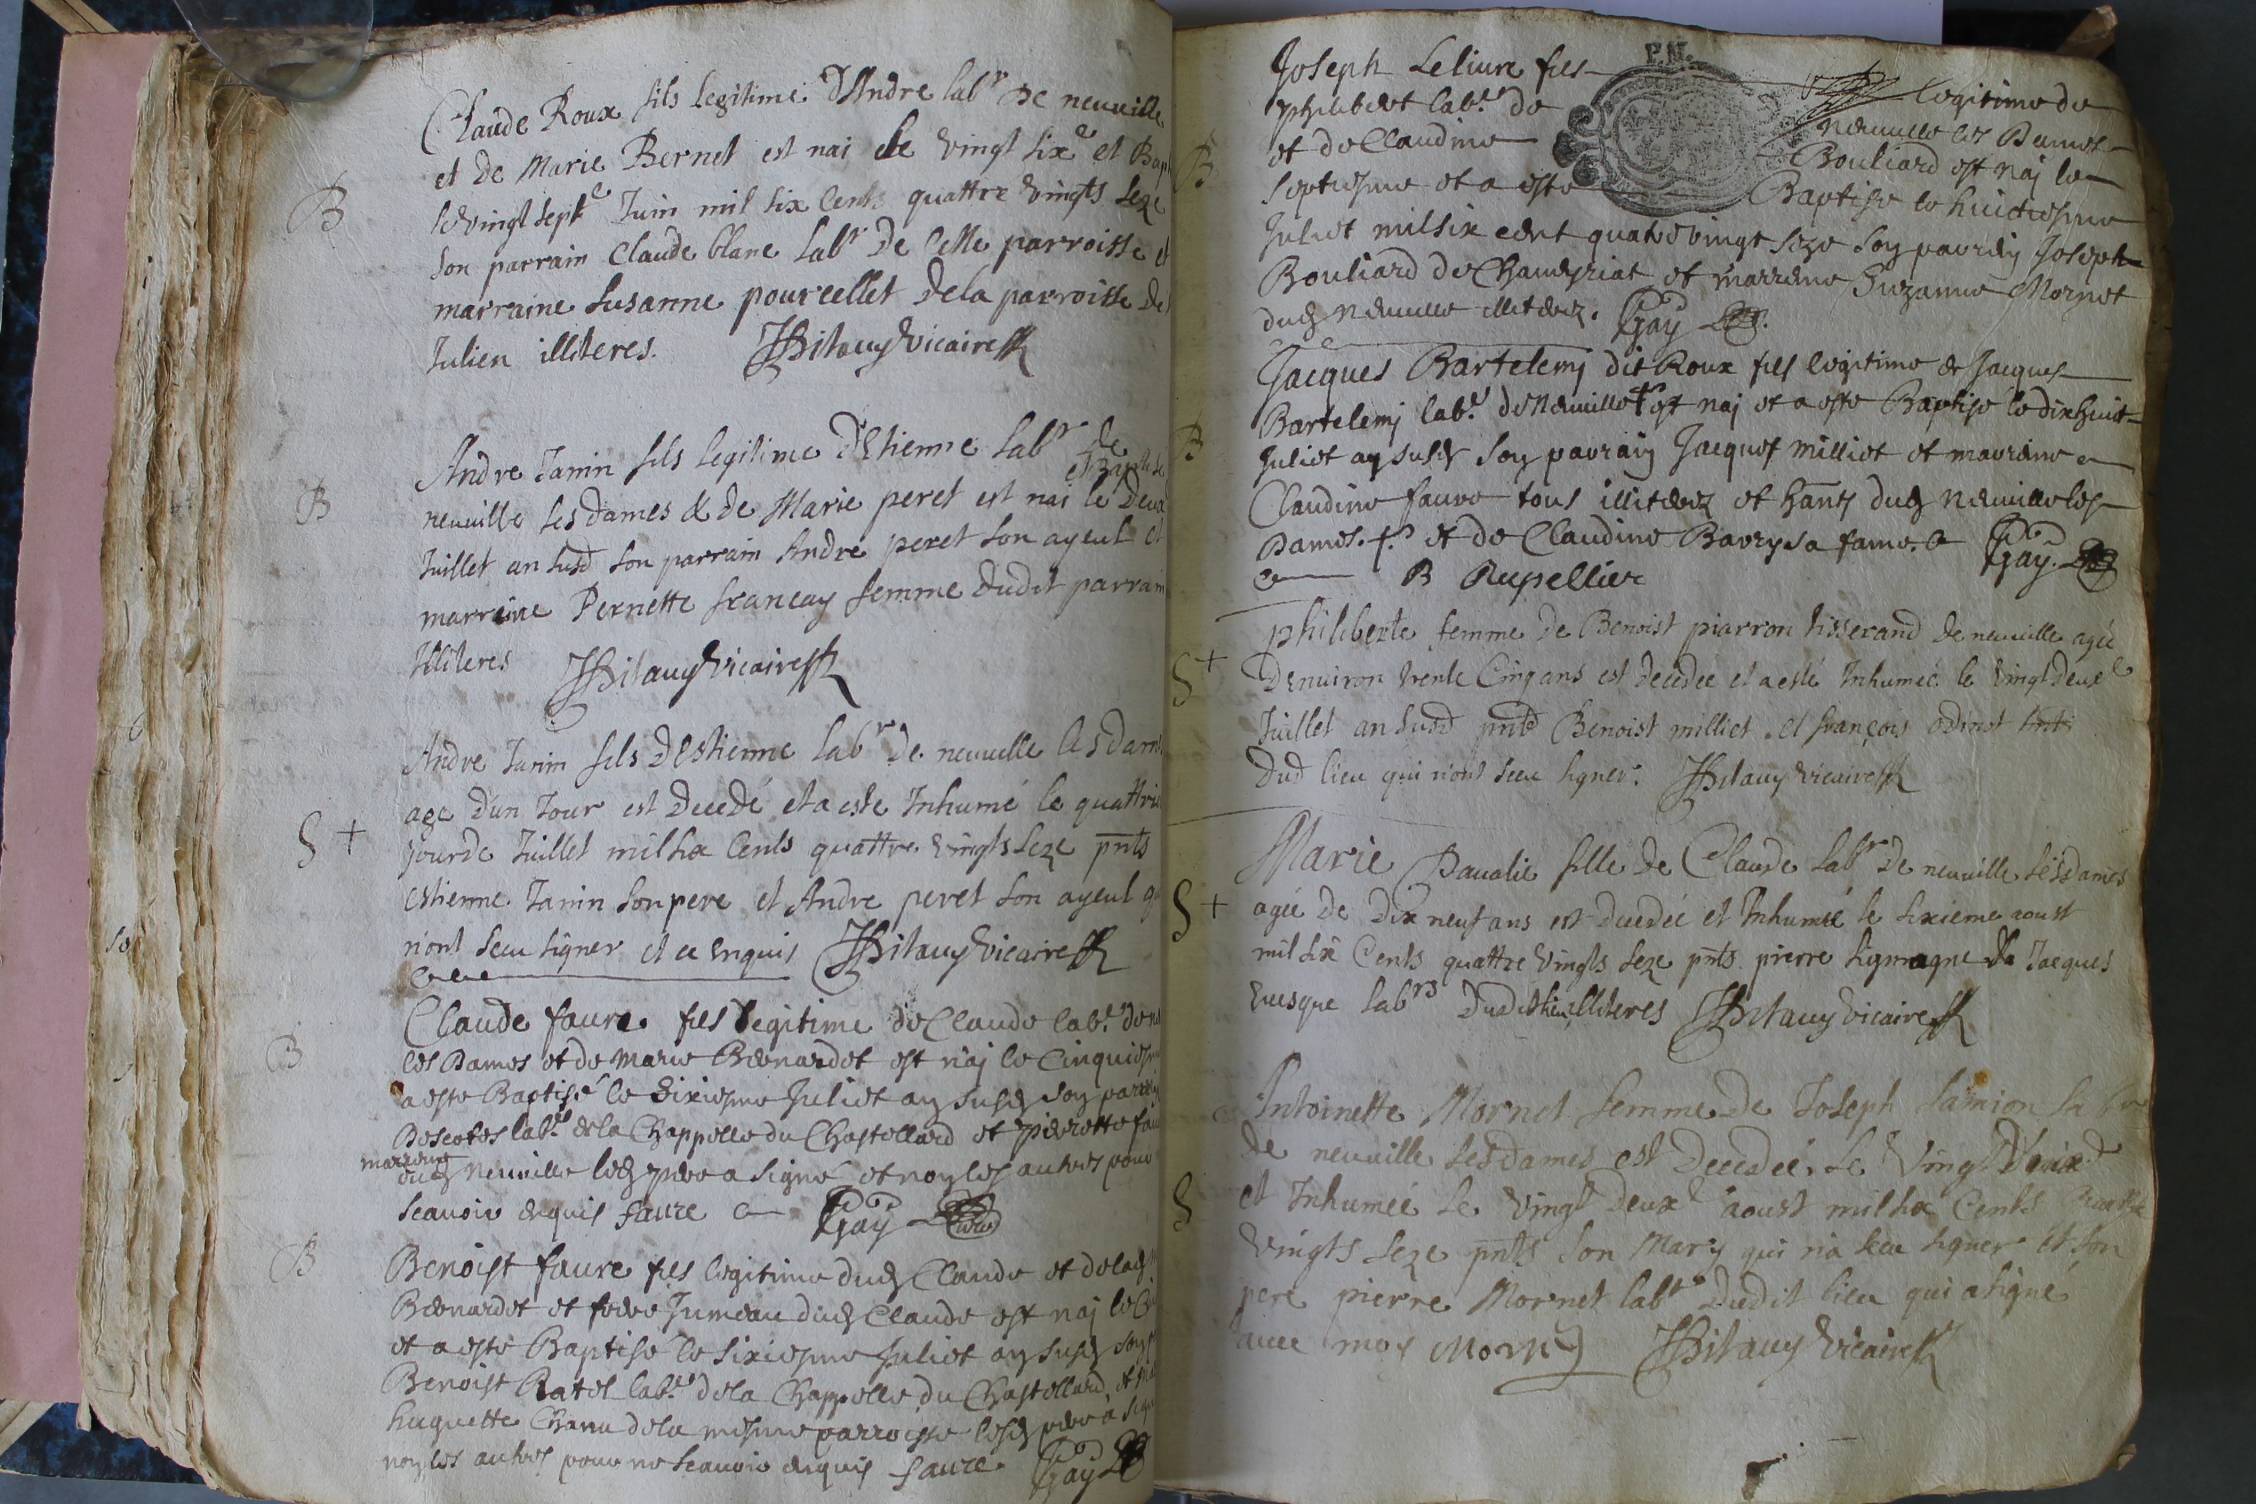 Claude Roux fils legitime d'Andre labr de neuuille
et de Marie Bernet est nai le vingt sixe et Bap
le vingt septe Juin mil six Cents quattre vingts seze
son parrain Claude blanc labr de cette parroisse et
marraine susanne pourcellet de la parroisse de
Julien illiteres. Vicaire
B
Andre Janin fils legitime d'Etienne labr de
et Baptisé
neuuille les dames & de Marie peret est nai le Deux
Juillet an susd son parrain Andre peret son ayeul et
marreine Pernette francay femme dudit parrain
Illiteres Vicaire
B
Andre Janin fils d'Estienne labr de neuuille les dames
age d'un Jour est decedé et a esté Inhumé le quattrie
jour de Juillet mil six Cents quattre vingts seze pnts
estienne Janin son pere et Andre peret son ayeul q
n'ont sceu signer et ce enquis Vicaire
S +
Claude faure fils legitime de Claude labr de
les Dames et de Marie Bernardet est naj le Cinquiesme
a esté Baptisé le sixiesme Juliet an susd son parrain
labr de la Chappelle du Chastellard et pierrette fau
marrene
dud neuuille led pere a signé et non les autres pour
scauoir enquis faure Gay
B
Benoist faure fils legitime dud Claude et de lad
Bernardet et frere Jumeau dud Claude est naj le Ci
et a esté Baptisé le sixiesme Juliet an susd son p
Benoist Ratel labr de la Chappelle du Chastellard et
huguette Chanu de la mesme parroisse led pere a sig
non les autres pour ne scauoir enquis faure Gay
B
P.N.
Joseph Leliure fils legitime de
philibert labr de neuuille les Dames
et de Claudine Bouliard est naj le
septiesme et a esté Baptisé le huictiesme
Juliet mil six cent quatre vingt seze son parrain Joseph
Bouliard de Chaneyriat et marrene Suzanne Mornet
dud neuuille illiterez. Gay
B
Jacques Bartelemj dit Roux fils legitime de Jacques
Bartelemj labr de neuuille + est naj et a esté Baptisé le dix huit
Juliet an susd son parrain Jacques milliet et marrene
Claudine faure tous illiterez et hants dud neuuille les
Dames. + et de Claudine Bavry sa fame. Gay
B Rupellier
B
philiberte femme de Benoist piarron tisserand de neuuille agée
d'enuiron trente Cinq ans est decedée et a esté Inhumée le vingt deuxe
Juillet an susd pnts Benoist milliet et françois odinot hnts
dud lieu qui n'ont sceu signer. Vicaire
S +
Marie Paualie fille de Claude labr de neuuille les dames
agée de dix neuf ans est decedée et Inhumée le sixieme aoust
mil six Cents quattre vingts seze pnts pierre signagne & Jacques
euesque labrs dudit lieu illiteres Vicaire
S +
Antoinette Mornet femme de Joseph samion labr
de neuuille les dames est decedée le vingt
et Inhumée le vingt deuxe aoust mil six Cents quattre
vingts seze pnts son Mary qui n'a sceu signer et son
pere pierre Mornet labr dudit lieu qui a signé
auec moy Mornet Vicaire
S